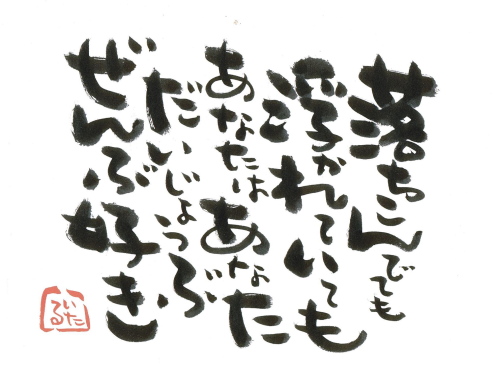 落ちこんでても
浮かれていても
あなたはあなた
だいじょうぶ
ぜんぶ好き
いた
る